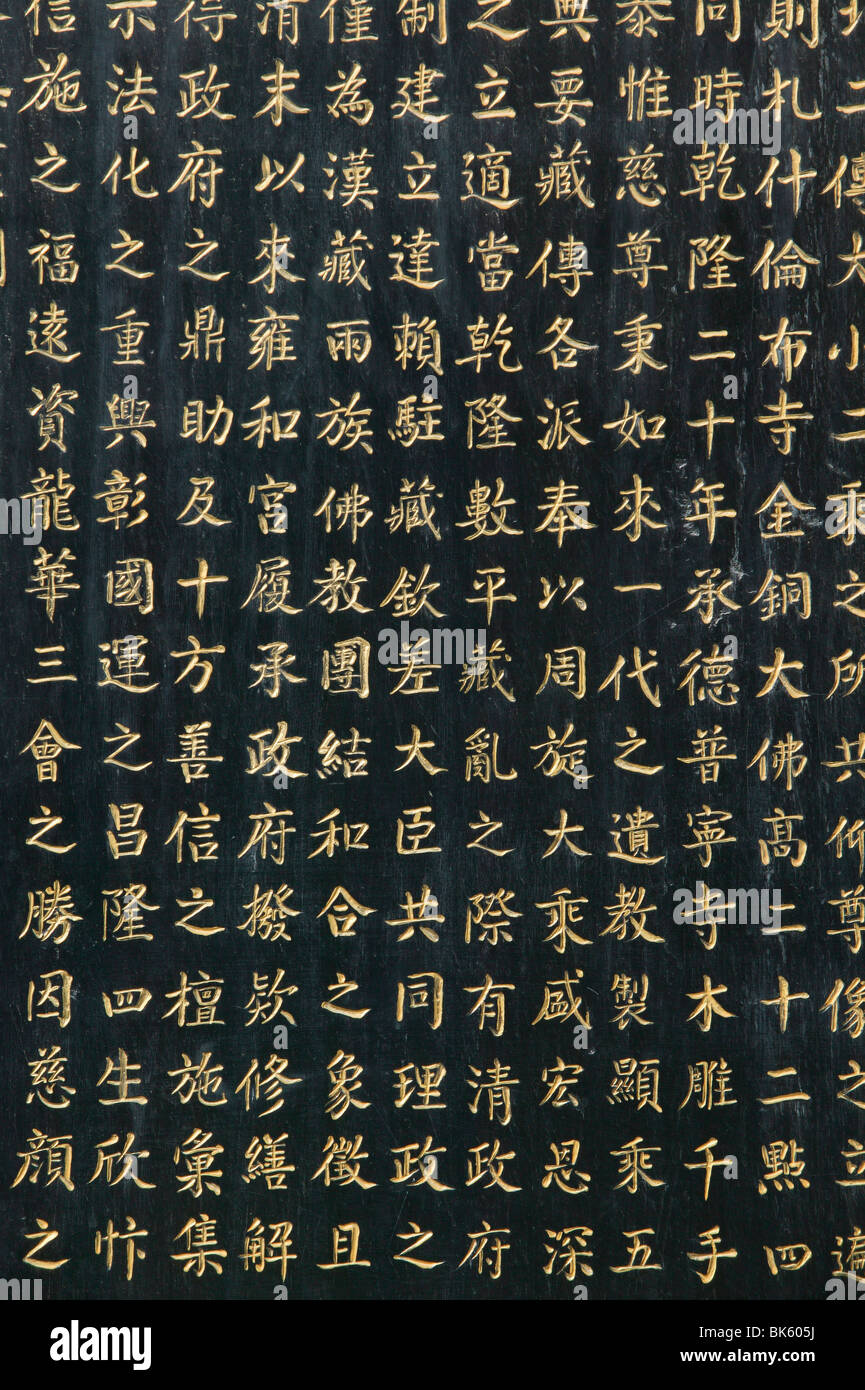 二傳大小二乘之所共仰尊像之立遍
則札什倫布寺金銅大佛高二十二點四
同時乾隆二十年承德普寧寺木雕千手
泰惟慈尊秉如來一代之遺教製顯乘五
典要藏傳各派奉以周旋大乘盛宏恩深
之立適當乾隆數平藏亂之際有清政府
制建立達賴駐藏欽差大臣共同理政之
僅為漢藏兩族佛教團結和合之象徵且
清末以來雍和宮履承政府撥欵修繕解
得政府之鼎助及十方善信之檀施彙集
示法化之重興彰國運之昌隆四生欣忭
信施之福遠資龍華三會之勝因慈顏之
alamy
Image ID: BK605J
www.alamy.com